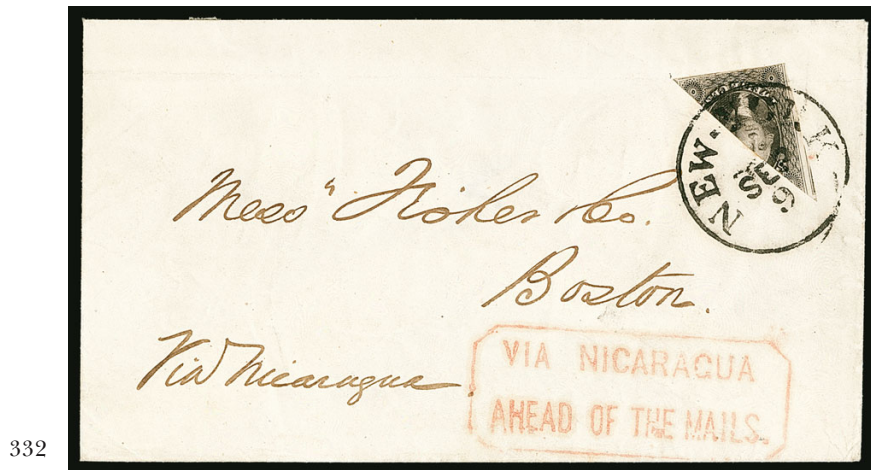 NEW-YORK
SEP
9
Mess" Fisher & Co.
Boston.
Via Nicaragua
VIA NICARAGUA
AHEAD OF THE MAILS.
332